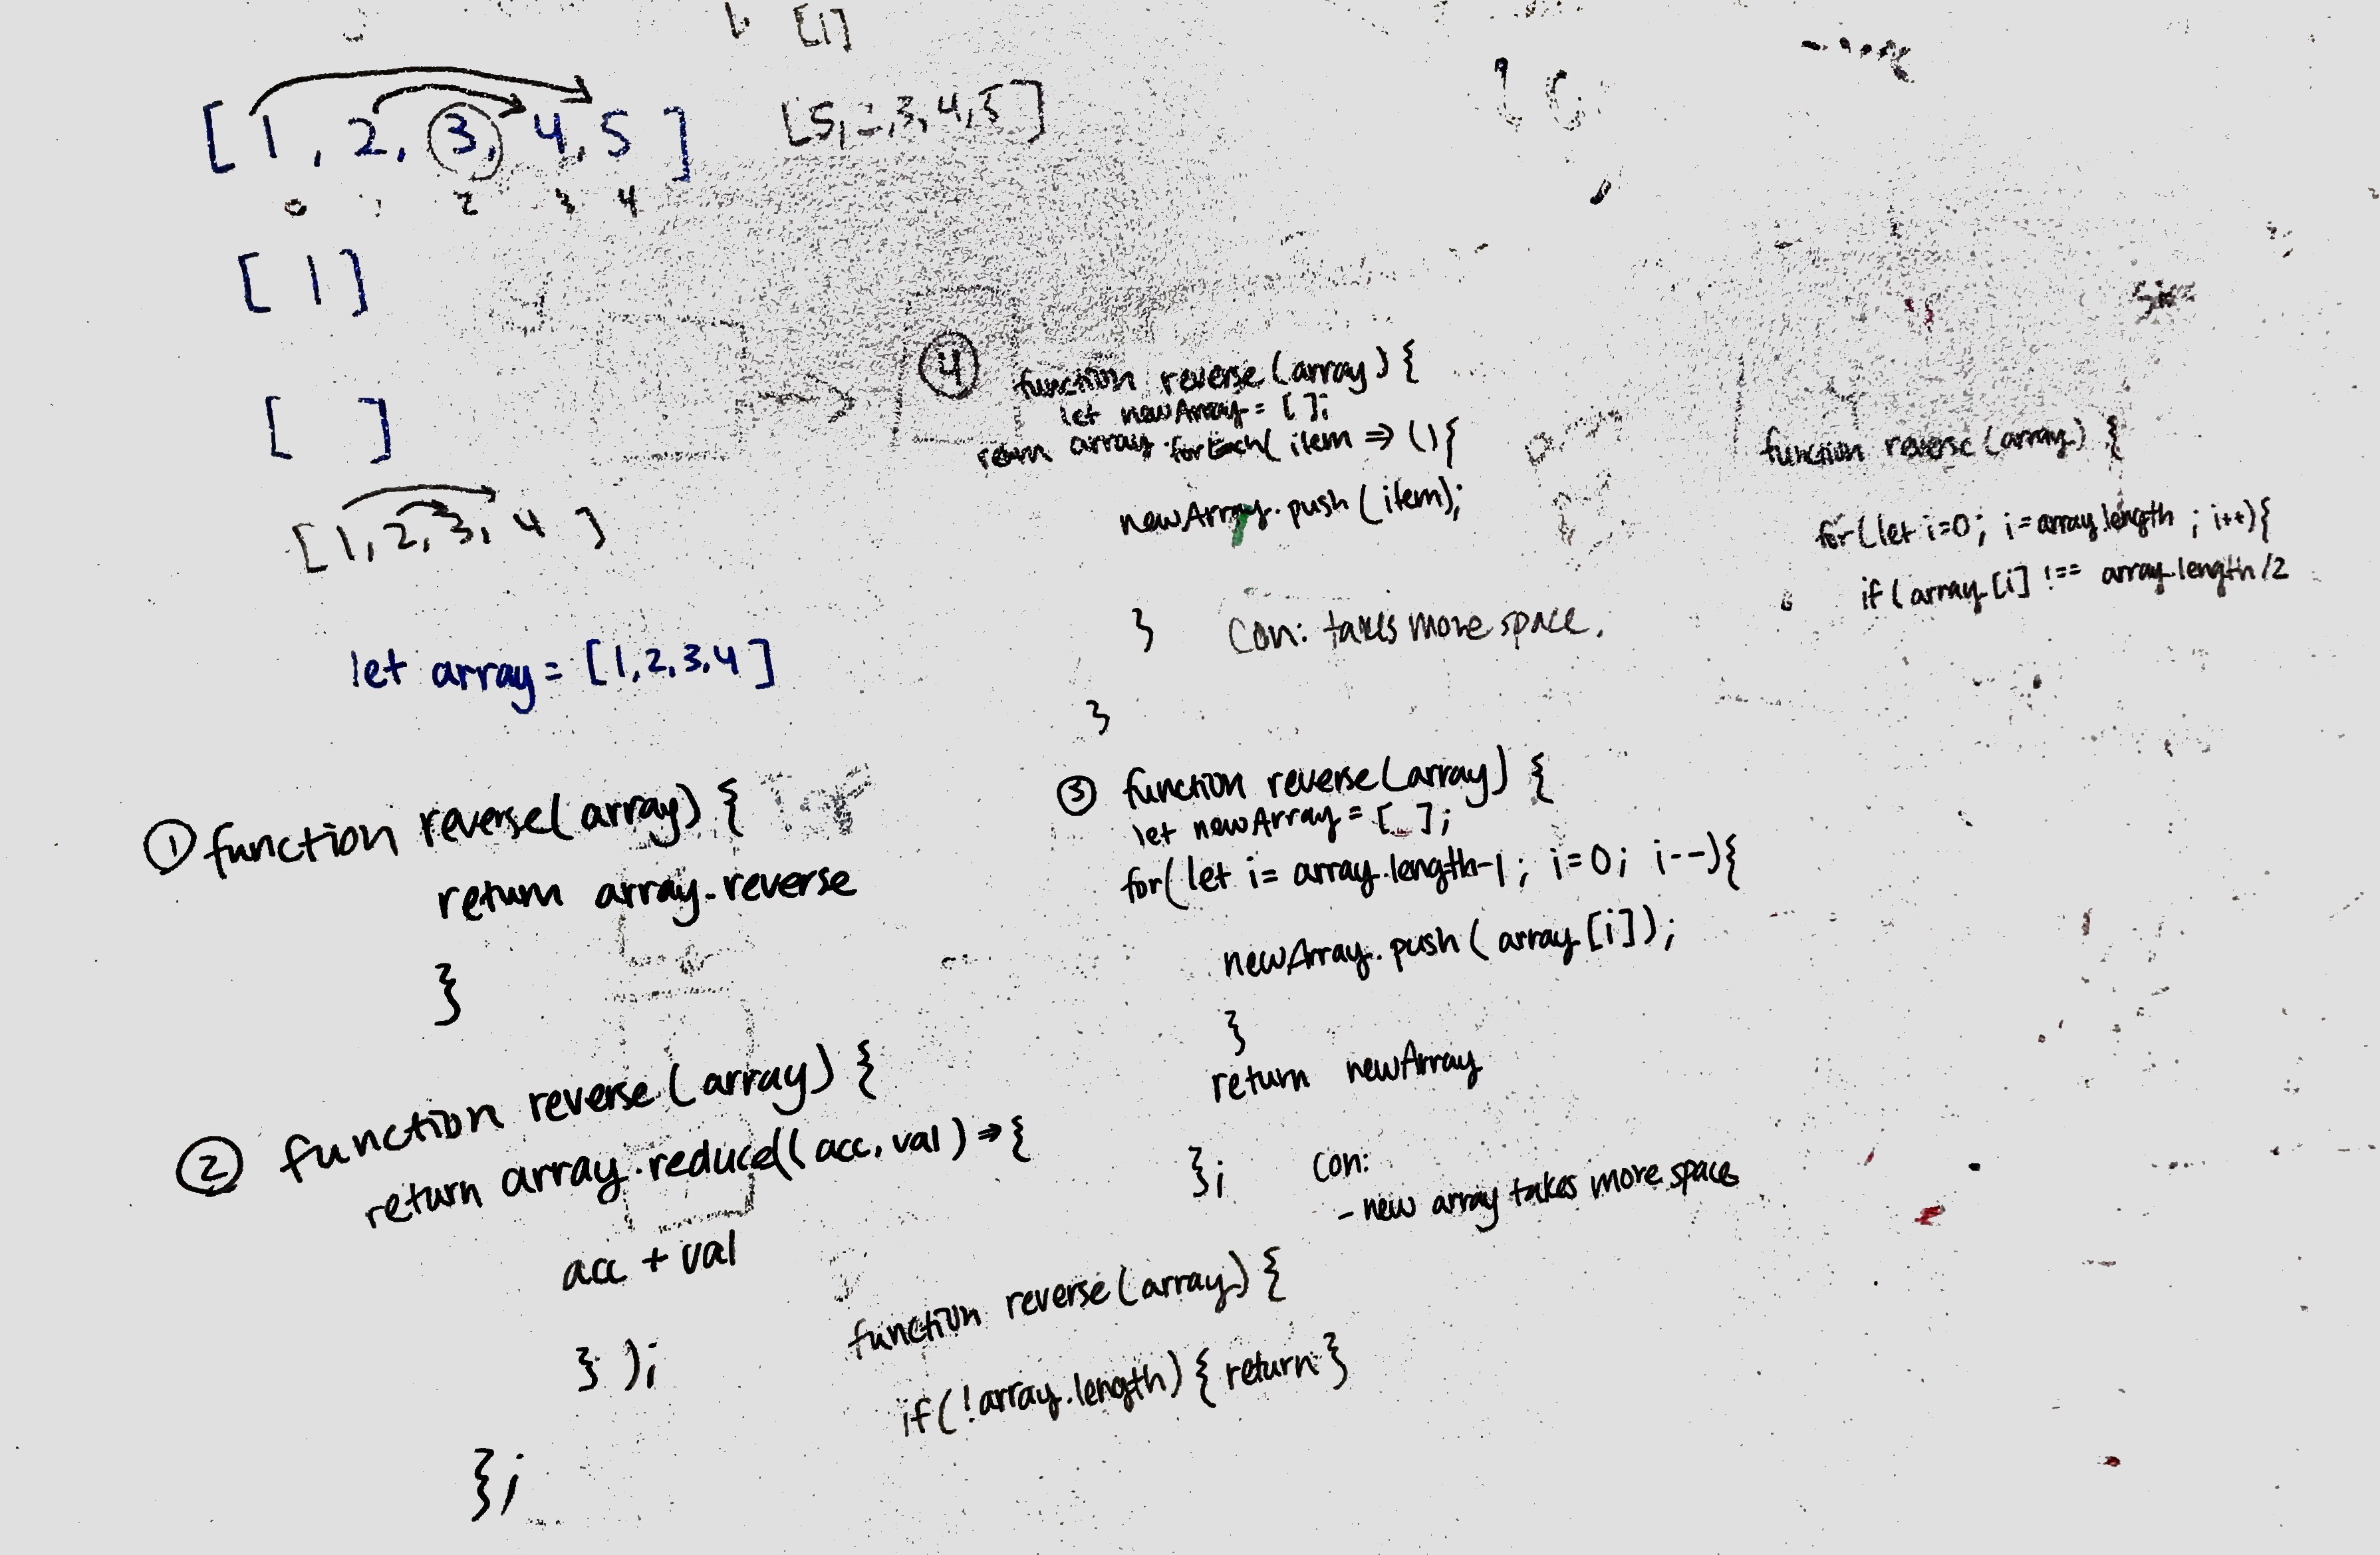 [1]
[ 1 , 2, 3, 4, 5 ]
0 1 2 3 4
[5, 2, 3, 4, 5]
[ 1 ]
[ ]
[1, 2, 3, 4 ]
let array = [1, 2, 3, 4 ]
① function reverse(array) {
return array.reverse
}
② function reverse (array) {
return array.reduce((acc, val) => {
acc + val
} );
};
④
function reverse (array) {
let newArray = [ ];
return array.forEach( item => () {
newArray.push (item);
} Con: takes more space.
}
③ function reverse(array) {
let newArray = [ ];
for( let i= array.length-1; i=0; i--){
newArray.push ( array [i]);
}
return newArray
};
Con:
- new array takes more space
function reverse (array) {
if( !array.length) { return }
function reverse (array) {
for( let i=0; i=array.length ; i++){
if( array [i] !== array.length /2